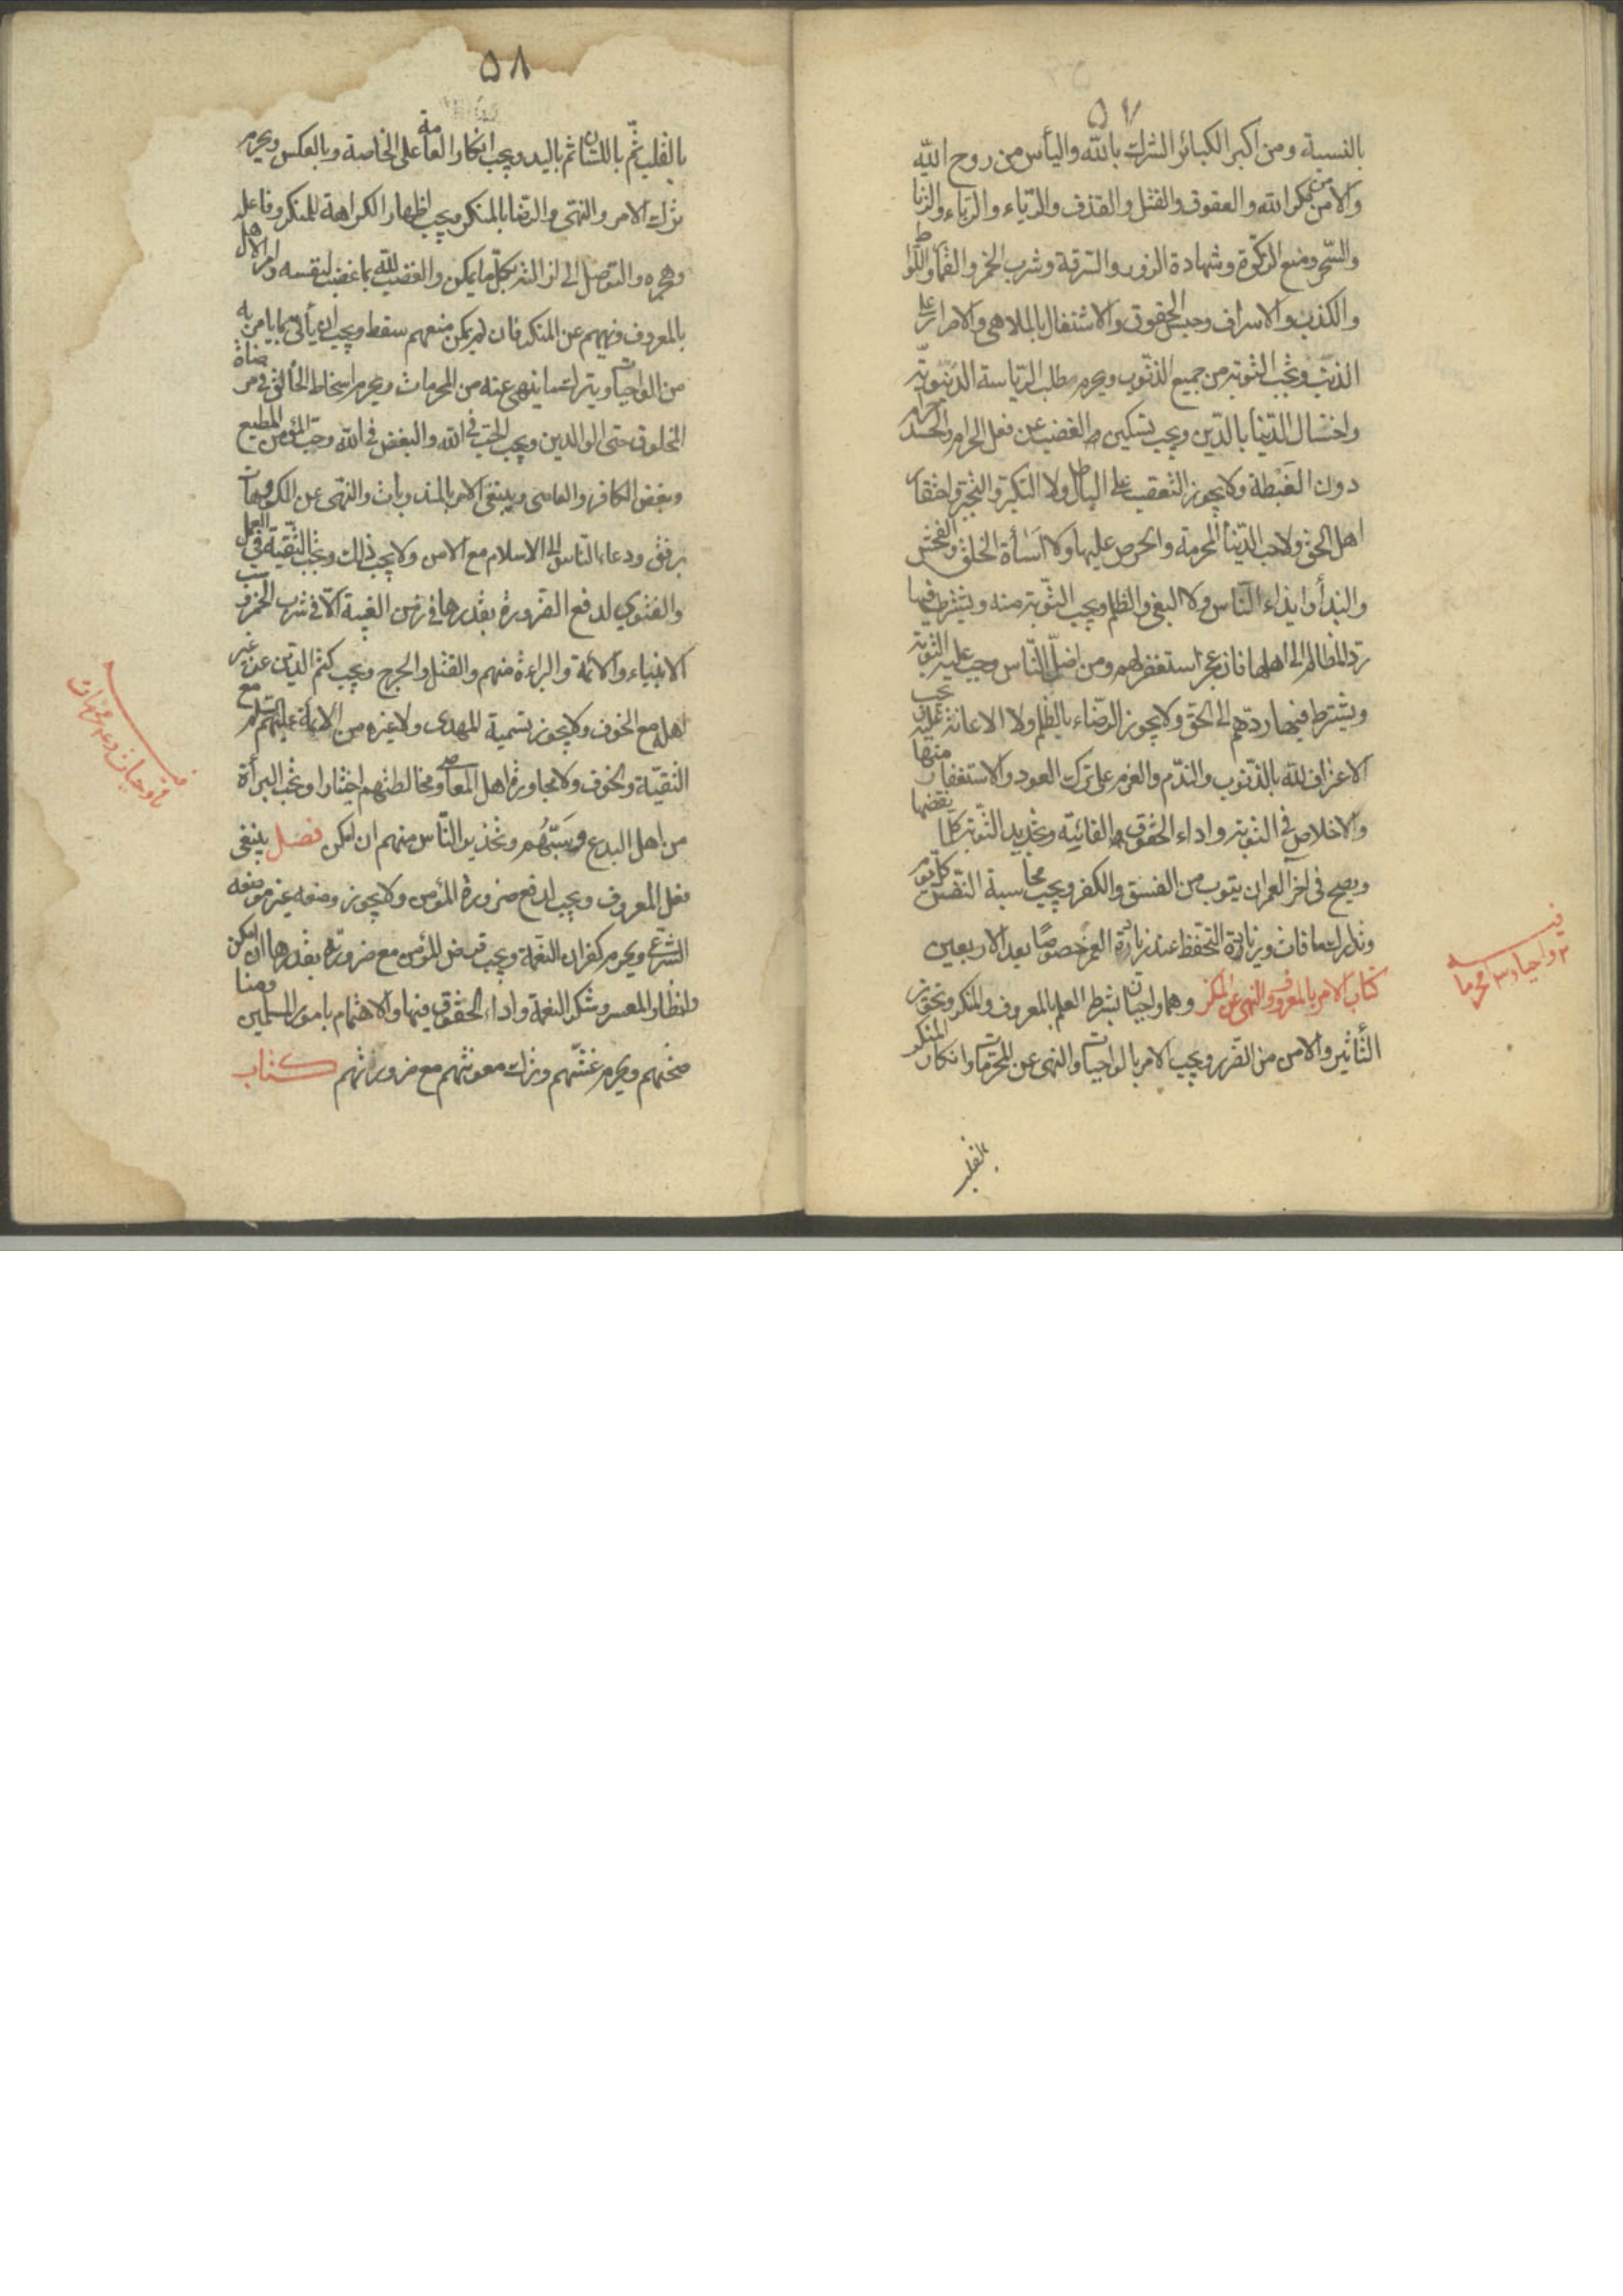 ٥٧
بالنسبة ومن اكبر الكبائر الشرك بالله واليأس من روح الله
والامن من مكر الله والعقوق والقتل والقذف والرياء والرباء والزنا
والسحر ومنع الزكوة وشهادة الزور والسرقة وشرب الخمر والقمار واللواط
والكذب والاسراف وحبس الحقوق والاشتغال بالملاهي والاصرار على
الذنب وتجب التوبة من جميع الذنوب ويحرم طلب الرياسة الدنيوية
واختتال الدنيا بالدين ويجب تسكين الغضب عن فعل الحرام ويحرم الحسد
دون الغبطة ولا يجوز التعصب على الباطل ولا التكبر والتجبر واحتقار
اهل الحق ولا حب الدنيا المحرمة والحرص عليها ولا اساأة الخلق والفحش
والبذأ وايذاء الناس ولا البغي والظلم ويجب التوبة منه ويشترط فيها
رد المظالم الى اهلها فان عجز استغفر لهم ومن اضل الناس وجب عليه التوبة
ويشترط فيها ردهم الى الحق ولا يجوز الرضاء بالظلم ولا الاعانة عليه يجب
الاعتراف لله بالذنوب والندم والعزم على ترك العود والاستغفار منها
والاخلاص في التوبة واداء الحقوق الفائتة وتجديد التوبة كلما نقضها
ويصح في آخر العمر ان يتوب من الفسق والكفر ويجب محاسبة النفس كل يوم
وتدارك ما فات وزيادة التحفظ عند زيادة العمر خصوصا بعد الاربعين
كتاب الامر بالمعروف والنهي عن المنكر وهما واجبان بشرط العلم بالمعروف والمنكر وتجويز
التأثير والامن من الضرر ويجب الامر بالواجبات والنهي عن المحرمات وانكار المنكر
بالقلب
٥٨
بالقلب ثم باللسان ثم باليد ويجب انكار العامة على الخاصة وبالعكس ويحرم
ترك الامر والنهي والرضا بالمنكر ويجب اظهار الكراهة للمنكر وفاعله
وهجره والتوصل الى ازالته بكل ما يمكن والغضب لله بما غضب لنفسه وامر الاهل
بالمعروف ونهيهم عن المنكر فان لم يمكن منعهم سقط ويجب ان يأتي بما يامر به
من الواجبات ويترك ما ينهى عنه من المحرمات ويحرم اسخاط الخالق في مرضاة
المخلوق حتى الوالدين ويجب الحب في الله والبغض في الله وحب المؤمن المطيع
وبغض الكافر والعاصي وينبغي الامر بالمندوبات والنهي عن المكروهات
برفق ودعاء الناس الى الاسلام مع الامن ولا يجب ذلك وتجب التقية في العمل
والفتوى لدفع الضرورة بقدرها في زمن الغيبة الا في شرب الخمر وسب
الانبياء والائمة والبراءة منهم والقتل والجرح ويجب كتم الدين عن غير
اهله مع الخوف ولا يجوز تسمية المهدى ولا غيره من الائمة عليهم السلم مع
التقية والخوف ولا مجاورة اهل المعاصي ومخالطتهم اختيارا وتجب البرأة
من اهل البدع وسبهم وتحذير الناس منهم ان امكن فصل ينبغي
فعل المعروف ويجب لدفع ضرورة المؤمن ولا يجوز وضعه غير موضعه
الشرعي ويحرم كفران النعمة ويجب قرض المؤمن مع ضرورته بقدرها ان امكن
وانظار المعسر وشكر النعمة واداء الحقوق فيها والاهتمام بامور المسلمين
نصحتهم ويحرم غشهم وترك معونتهم مع ضرورتهم كتاب